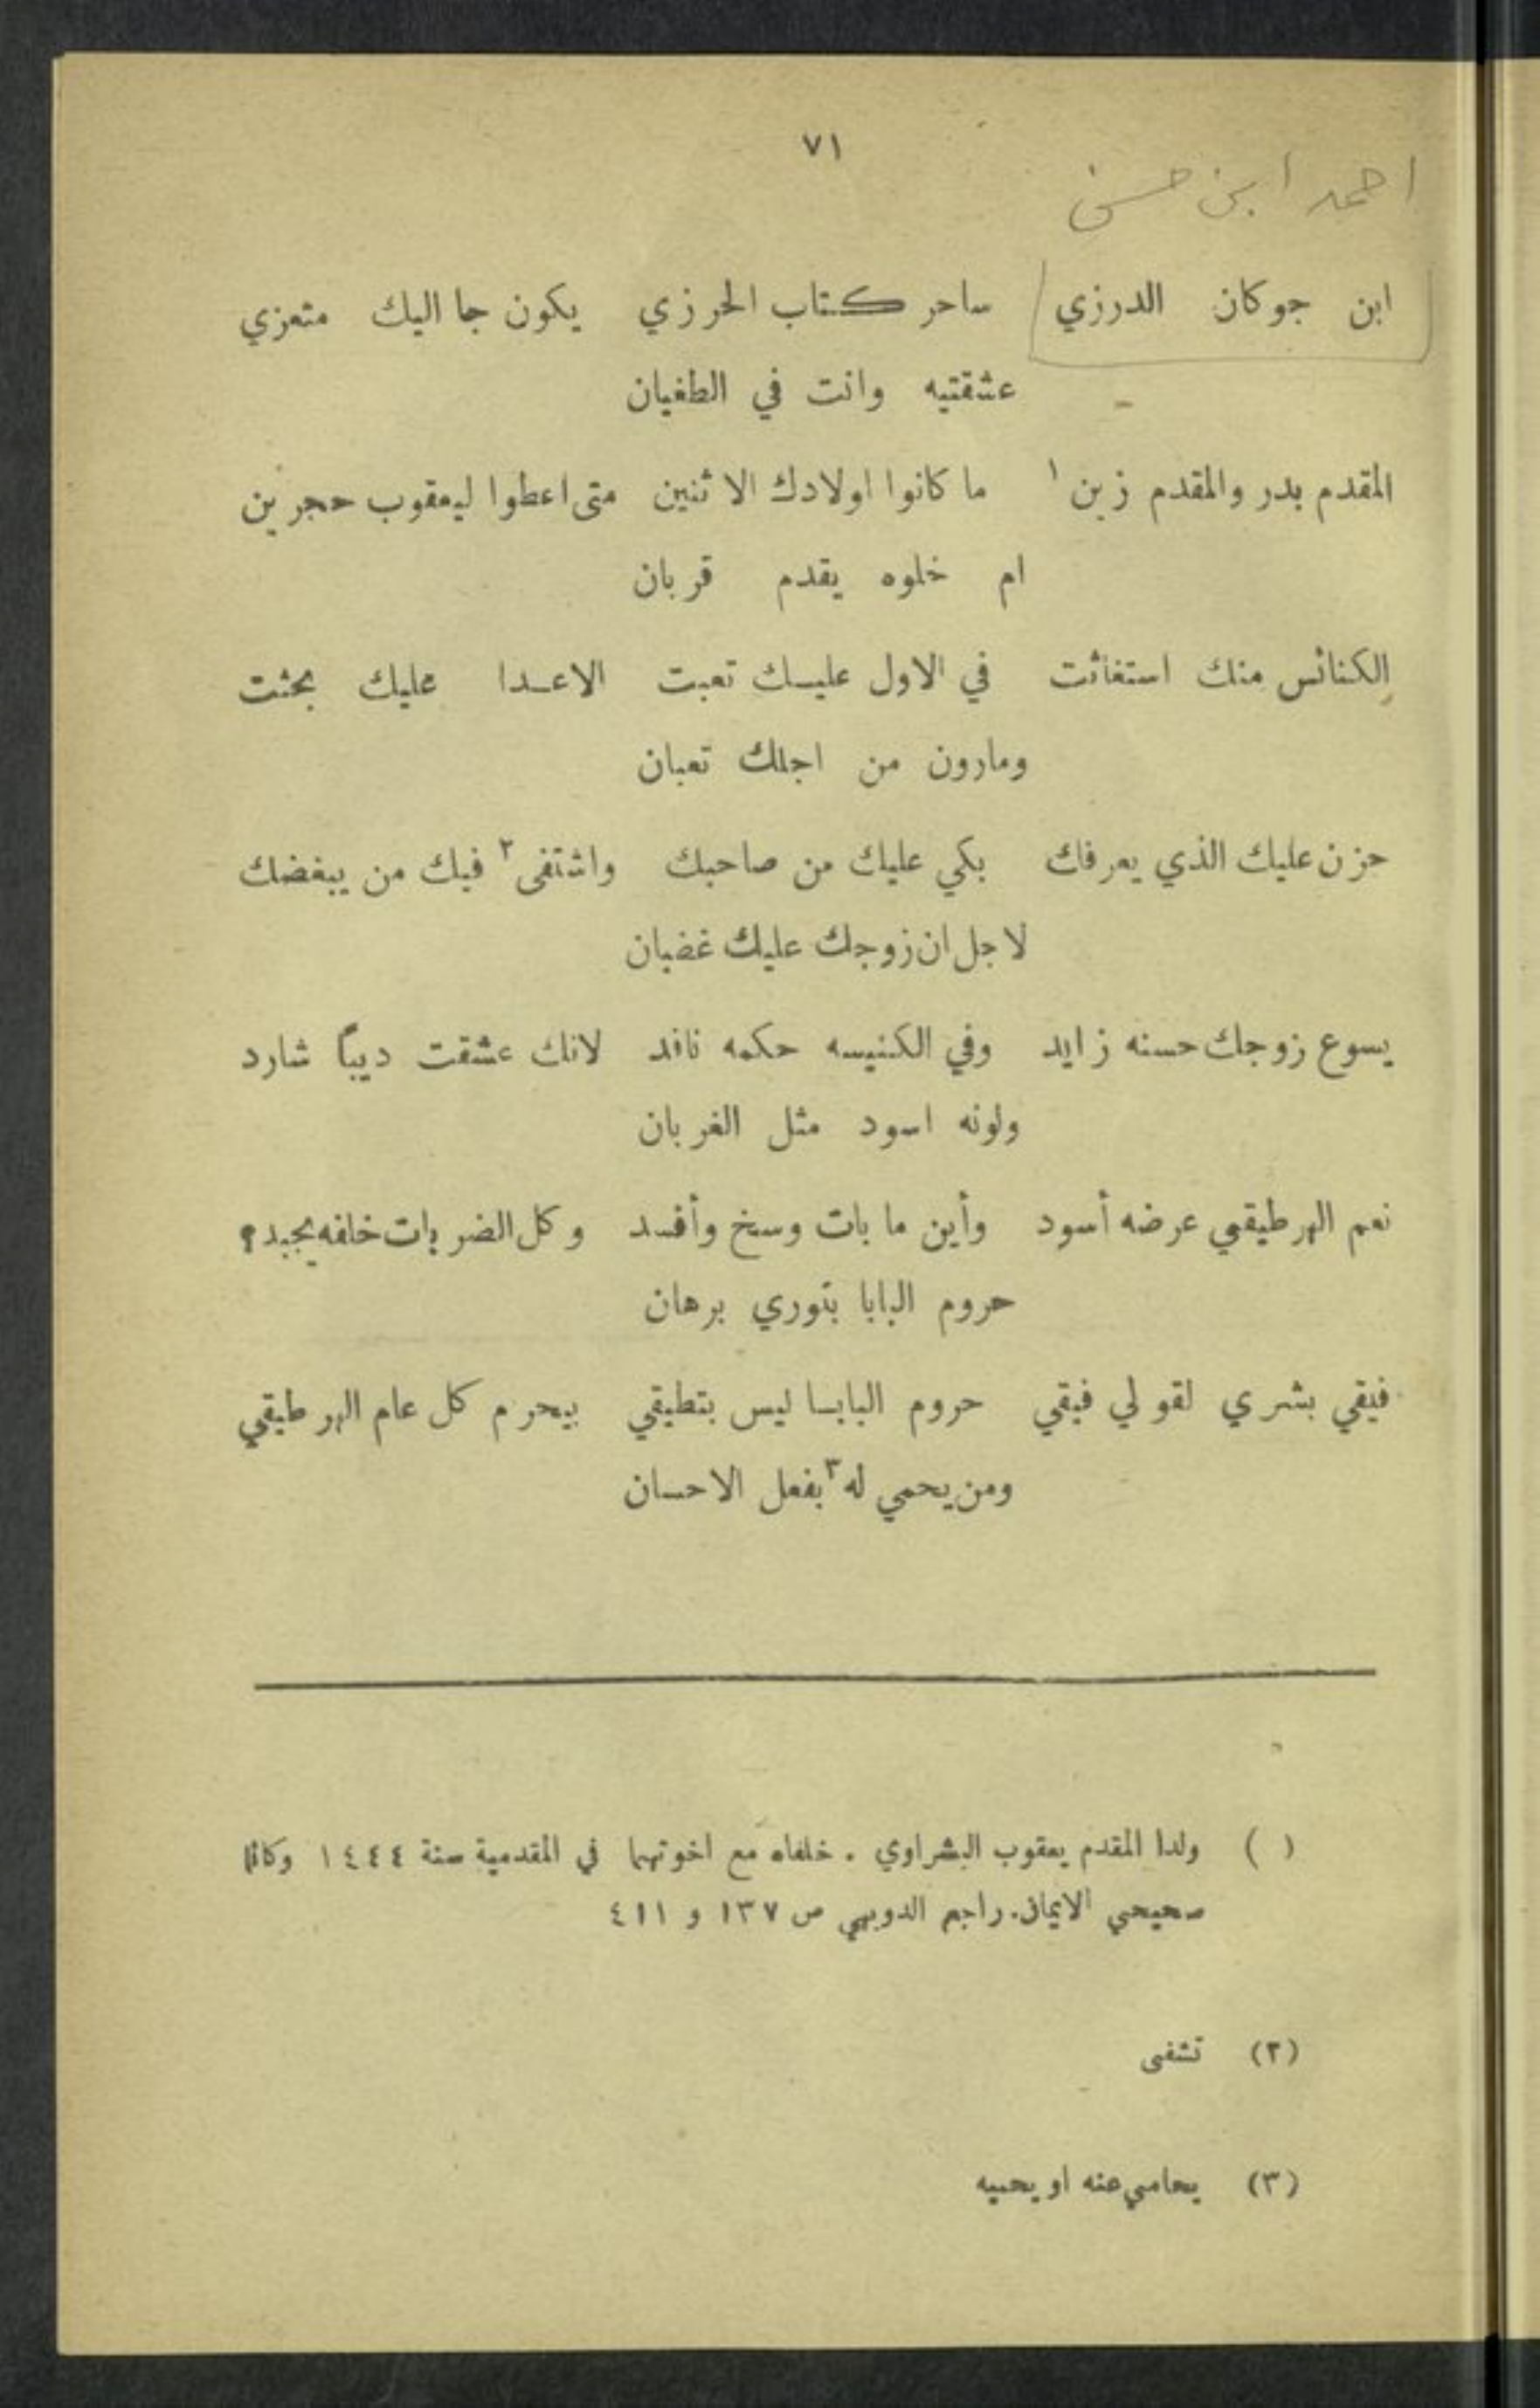 ٧١
احمد ابن حسن
ابن جوكان الدرزي ساحر كتاب الحرزي يكون جا اليك متعزي
عشقتيه وانت في الطغيان
المقدم بدر والمقدم زين ١ ما كانوا اولادك الاثنين متى اعطوا ليعقوب حجرين
ام خلوه يقدم قربان
الكنائس منك استغاثت في الاول عليك تعبت الاعدا عليك بحثت
ومارون من اجلك تعبان
حزن عليك الذي يعرفك بكي عليك من صاحبك واشتفى ٢ فيك من يبغضك
لاجل ان زوجك عليك غضبان
يسوع زوجك حسنه زايد وفي الكنيسه حكمه نافد لانك عشقت ديباً شارد
ولونه اسود مثل الغربان
نعم الهرطيقي عرضه أسود وأين ما بات وسخ وأفسد وكل الضربات خلفه يجبد؟
حروم البابا بتوري برهان
فيقي بشري لقولي فيقي حروم البابا ليس بتطيقي بيحرم كل عام الهرطيقي
ومن يحمي له ٣ بفعل الاحسان
( ) ولدا المقدم يعقوب البشراوي . خلفاه مع اخوتهما في المقدمية سنة ١٤٤٤ وكانا
صحيحي الايمان. راجع الدويهي ص ١٣٧ و ٤١١
(٢) تشفى
(٣) يحامي عنه او يحميه